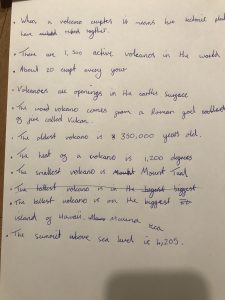 • When a volcano erupts it means two tectonic plates
have rubbed together.
• There are 1,500 active volcanos in the world
• About 20 erupt every year
• Volcanoes are openings in the earths surface
• The word volcano comes from a Roman god
of fire called Vulcan.
• The oldest volcano is 350,000 years old.
• The heat of a volcano is 1,200 degrees
• The smallest volcano is Mount Taal
• The tallest volcano is in the biggest
• The tallest volcano is on the biggest
island of Hawaii. Mauna
Kea
• The summit above sea level is 4,205.